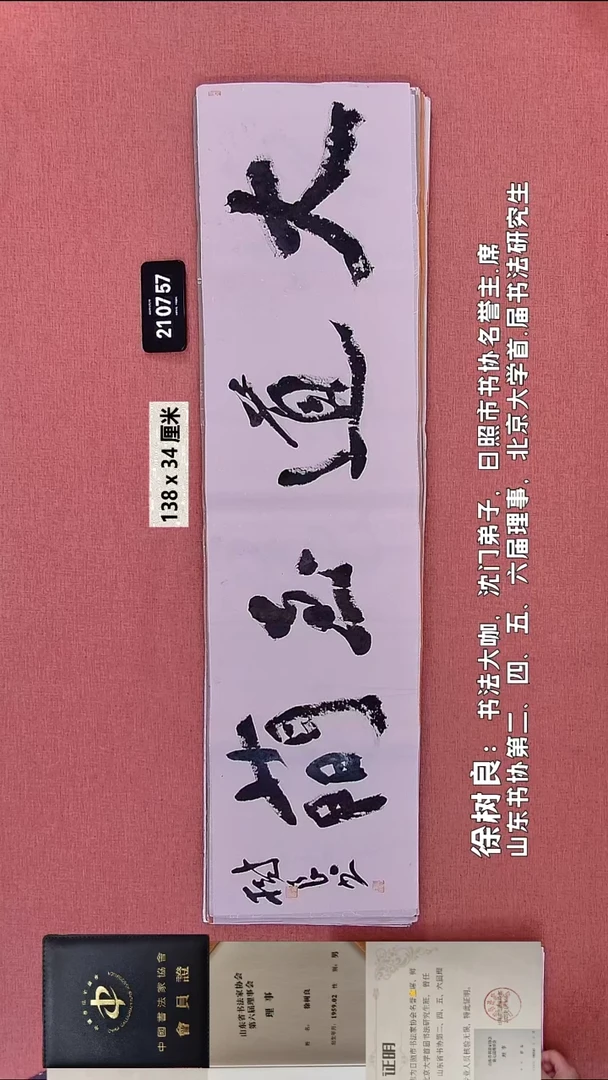 大道至簡
樹良
210757
138 x 34 厘米
徐树良：书法大咖，沈门弟子，日照市书协名誉主.席
山东书协第二、四、五、六届理事，北京大学首.届书法研究生
中國書法家協會
會員證
山东省书法家协会
第六届理事会
理事
徐树良
1959.02 男
证明